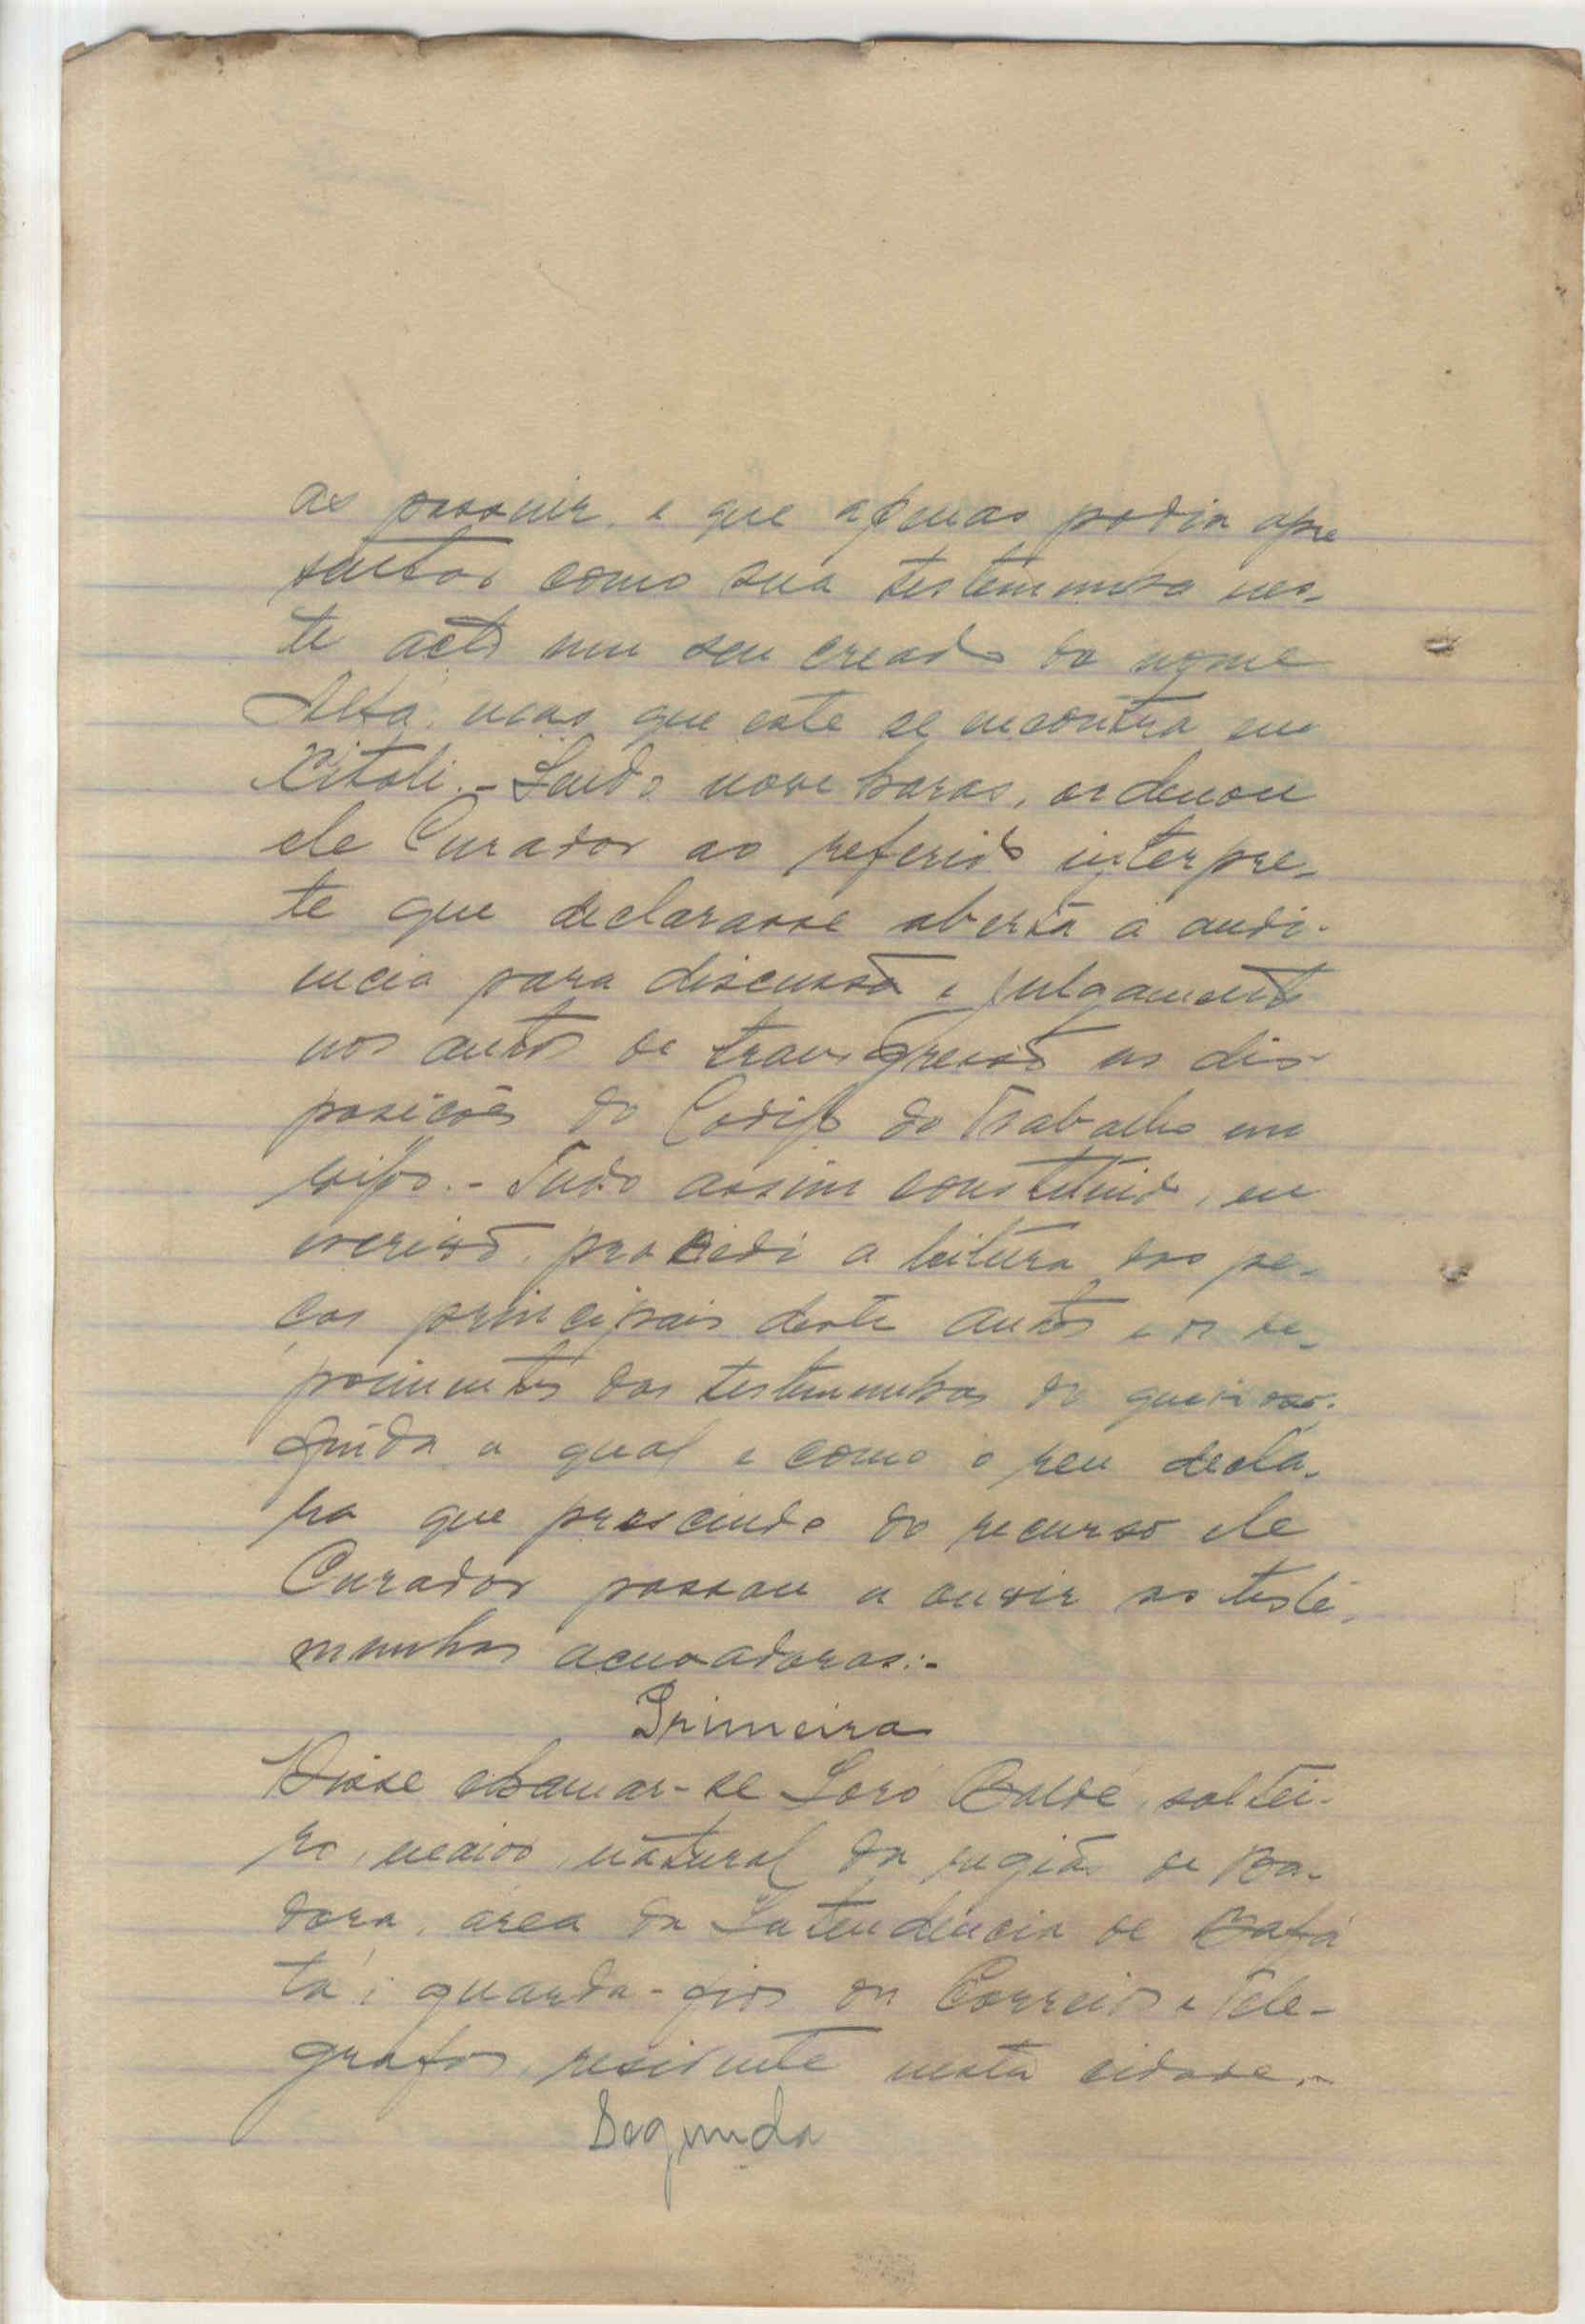 as possuir, e que apenas podia apre
sentar como sua testemunha nes-
te acto um seu creado de nome
mas que este se encontra em
Xitoli.- Sendo nove horas, ordenou
ele Curador ao referido interpre-
te que declarasse aberta a audi-
encia para discussão e julgamento
nos autos de transgressão as dis-
posições do Codigo do Trabalho em
vigor.- Tudo assim constituido, eu
escrivão, procedi a leitura das pe-
ças principais deste autos e os de-
poimentos das testemunhas da
a qual e como o reu decla-
ra que prescinde do recurso ele
Curador passou a ouvir as teste-
munhas acusadoras:-
Primeira
Disse chamar-se Soró Baldé, soltei-
ro, maior, natural da região de Ba-
dora, área da Intendência de Bafá
tá, guarda-fios dos Correios e Tele-
grafos, residente nesta cidade.-
Segunda